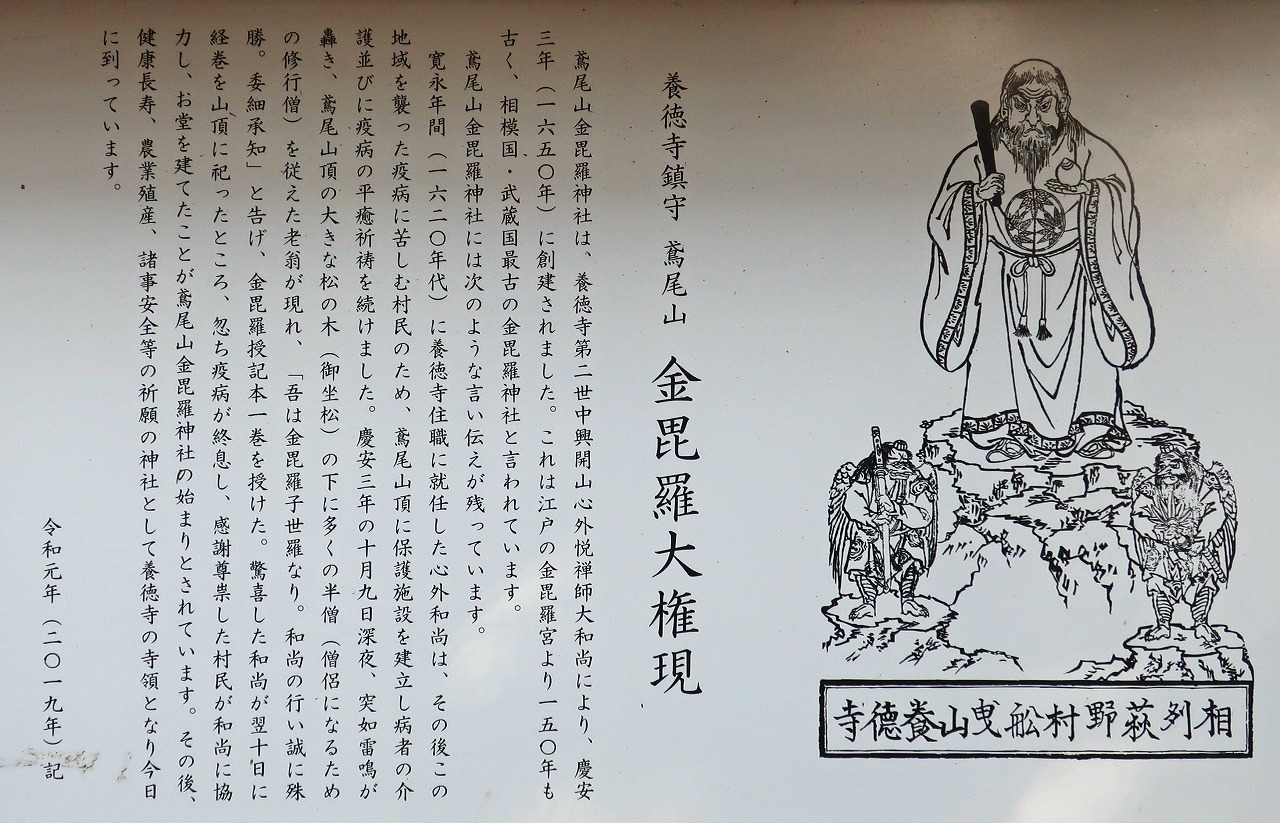 相列萩野村舩曳山養德寺
養徳寺鎮守 鳶尾山 金毘羅大権現
鳶尾山金毘羅神社は、養徳寺第二世中興開山心外悦禅師大和尚により、慶安
三年（一六五〇年）に創建されました。これは江戸の金毘羅宮より一五〇年も
古く、相模国・武蔵国最古の金毘羅神社と言われています。
鳶尾山金毘羅神社には次のような言い伝えが残っています。
寛永年間（一六二〇年代）に養徳寺住職に就任した心外和尚は、その後この
地域を襲った疫病に苦しむ村民のため、鳶尾山頂に保護施設を建立し病者の介
護並びに疫病の平癒祈祷を続けました。慶安三年の十月九日深夜、突如雷鳴が
轟き、鳶尾山頂の大きな松の木（御坐松）の下に多くの半僧（僧侶になるため
の修行僧）を従えた老翁が現れ、「吾は金毘羅子世羅なり。和尚の行い誠に殊
勝。委細承知」と告げ、金毘羅授記本一巻を授けた。驚喜した和尚が翌十日に
経巻を山頂に祀ったところ、忽ち疫病が終息し、感謝尊崇した村民が和尚に協
力し、お堂を建てたことが鳶尾山金毘羅神社の始まりとされています。その後、
健康長寿、農業殖産、諸事安全等の祈願の神社として養徳寺の寺領となり今日
に到っています。
令和元年（二〇一九年）記